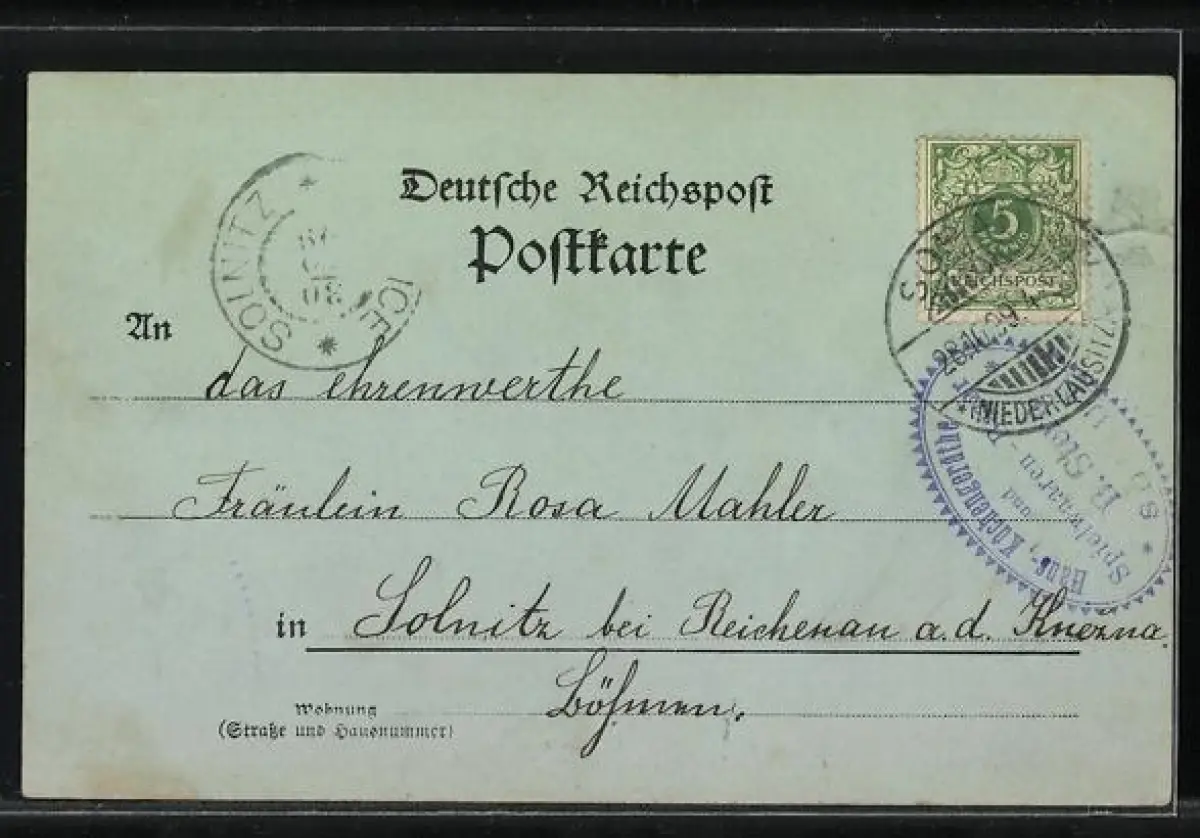 Deutsche Reichspost
Postkarte
5
REICHSPOST
SOLNITZ
ICE
28.10.99.
NIEDERLAUSITZ
An
das ehrenwerthe
Fräulein Rosa Mahler
in Solnitz bei Reichenau a.d. Knezna
Böhmen.
Wohnung
(Straße und Hausnummer)
Haus-, Küchengeräthe
und
Spielwaaren -
B.